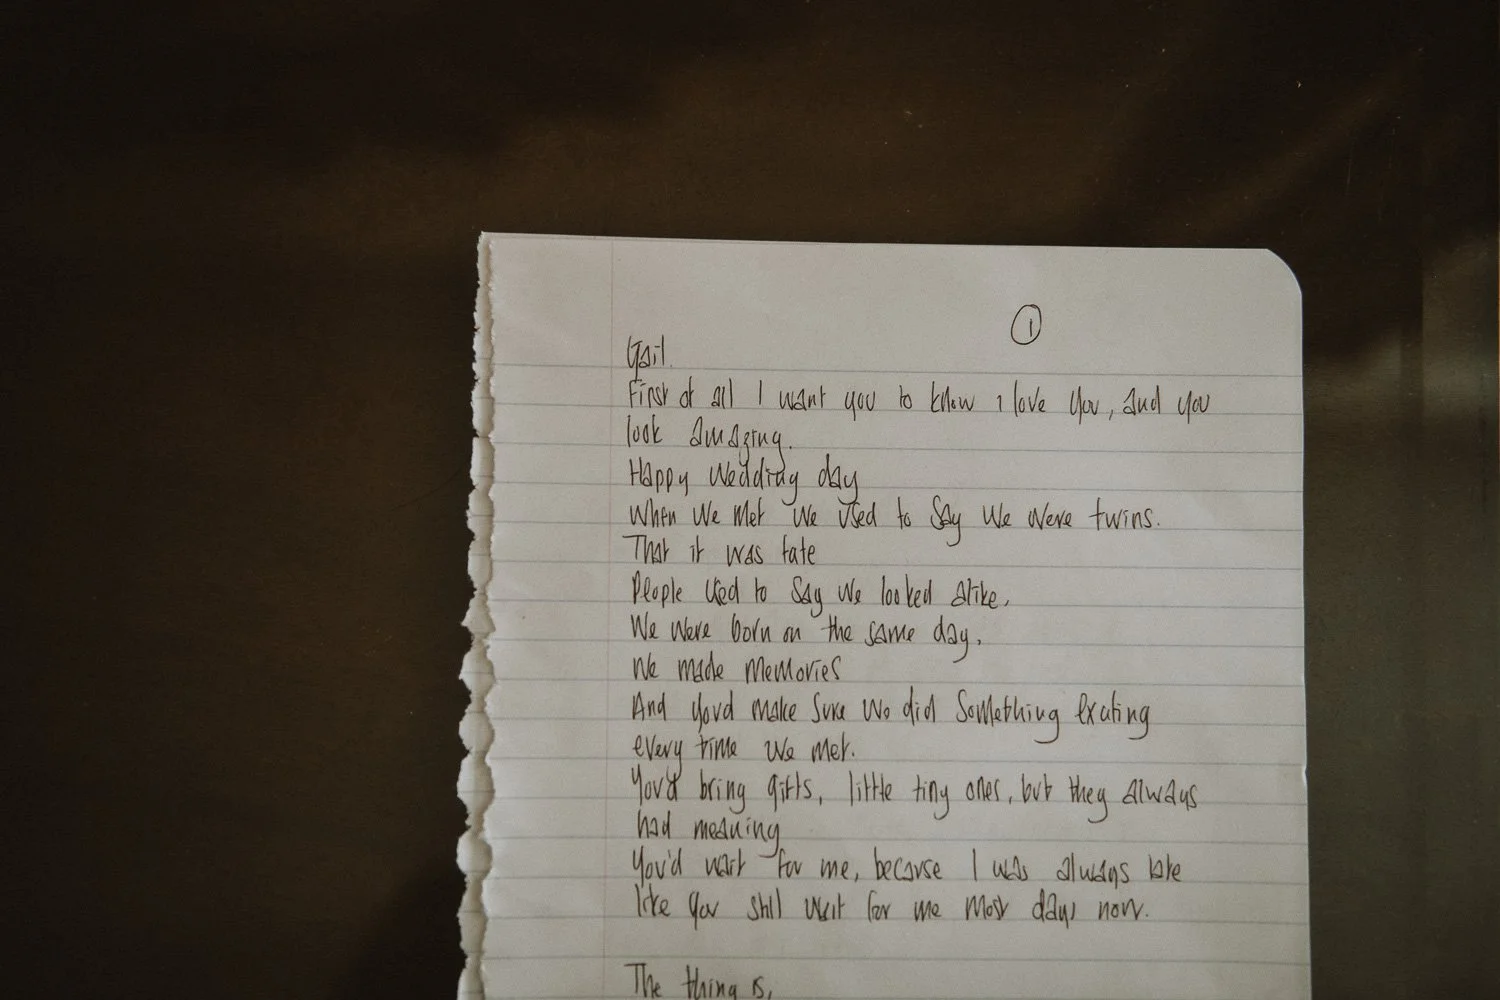 1
Gail.
First of all I want you to know I love you, and you
look amazing.
Happy wedding day
When we met we used to say we were twins.
That it was fate
People used to say we looked alike.
We were born on the same day.
We made memories
And you'd make sure we did something exciting
every time we met.
You'd bring gifts, little tiny ones, but they always
had meaning
You'd wait for me, because I was always late
like you still wait for me most days now.
The thing is,